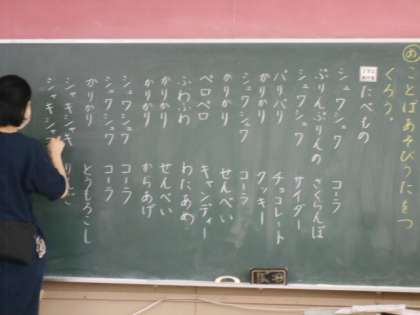 ことばあそびうたをつ
くろう。
たべもの
シュワシュワ コーラ
ぷりんぷりんの さくらんぼ
シュワシュワ サイダー
パリパリ チョコレート
かりかり クッキー
シュワシュワ コーラ
かりかり せんべい
ペロペロ キャンディー
ふわふわ わたあめ
かりかり せんべい
かりかり からあげ
シュワシュワ コーラ
シュワシュワ コーラ
かりかり とうもろこし
シャキシャキ りんご
シャキシャ